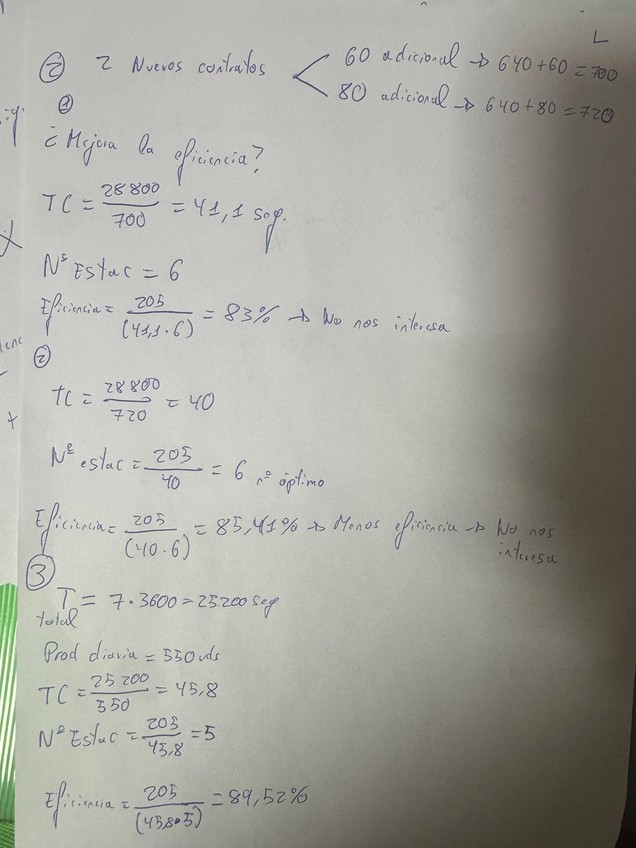 ② 2 Nuevos contratos < 60 adicional → 640+60=700
80 adicional → 640+80=720
①
¿Mejora la eficiencia?
TC = 28800/700 = 41,1 seg.
Nº Estac = 6
Eficiencia = 205/(41,1·6) = 83% → No nos interesa
②
TC = 28800/720 = 40
Nº estac = 205/40 = 6 nº óptimo
Eficiencia = 205/(40·6) = 85,41% → Menos eficiencia → No nos
interesa
③
T = 7·3600 = 25200 seg
total
Prod diaria = 550 uds
TC = 25200/550 = 45,8
Nº Estac = 205/45,8 = 5
Eficiencia = 205/(45,8·5) = 89,52%